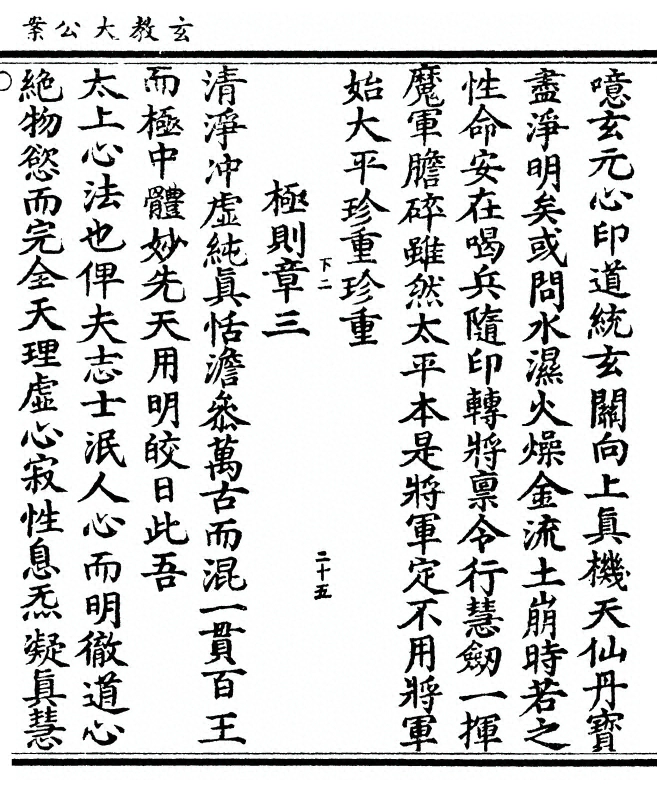 玄教大公案
噫玄元心印道統玄關向上眞機天仙丹寶
盡淨明矣或問水濕火燥金流土崩時若之
性命安在喝兵隨印轉將禀令行慧劒一揮
魔軍膽碎雖然太平本是將軍定不用將軍
始大平珍重珍重
下二
二十五
極則章三
清淨冲虛純眞恬澹叅萬古而混一貫百王
而極中體妙先天用明皎日此吾
太上心法也俾夫志士泯人心而明徹道心
絶物慾而完全天理虛心寂性息炁凝眞慧